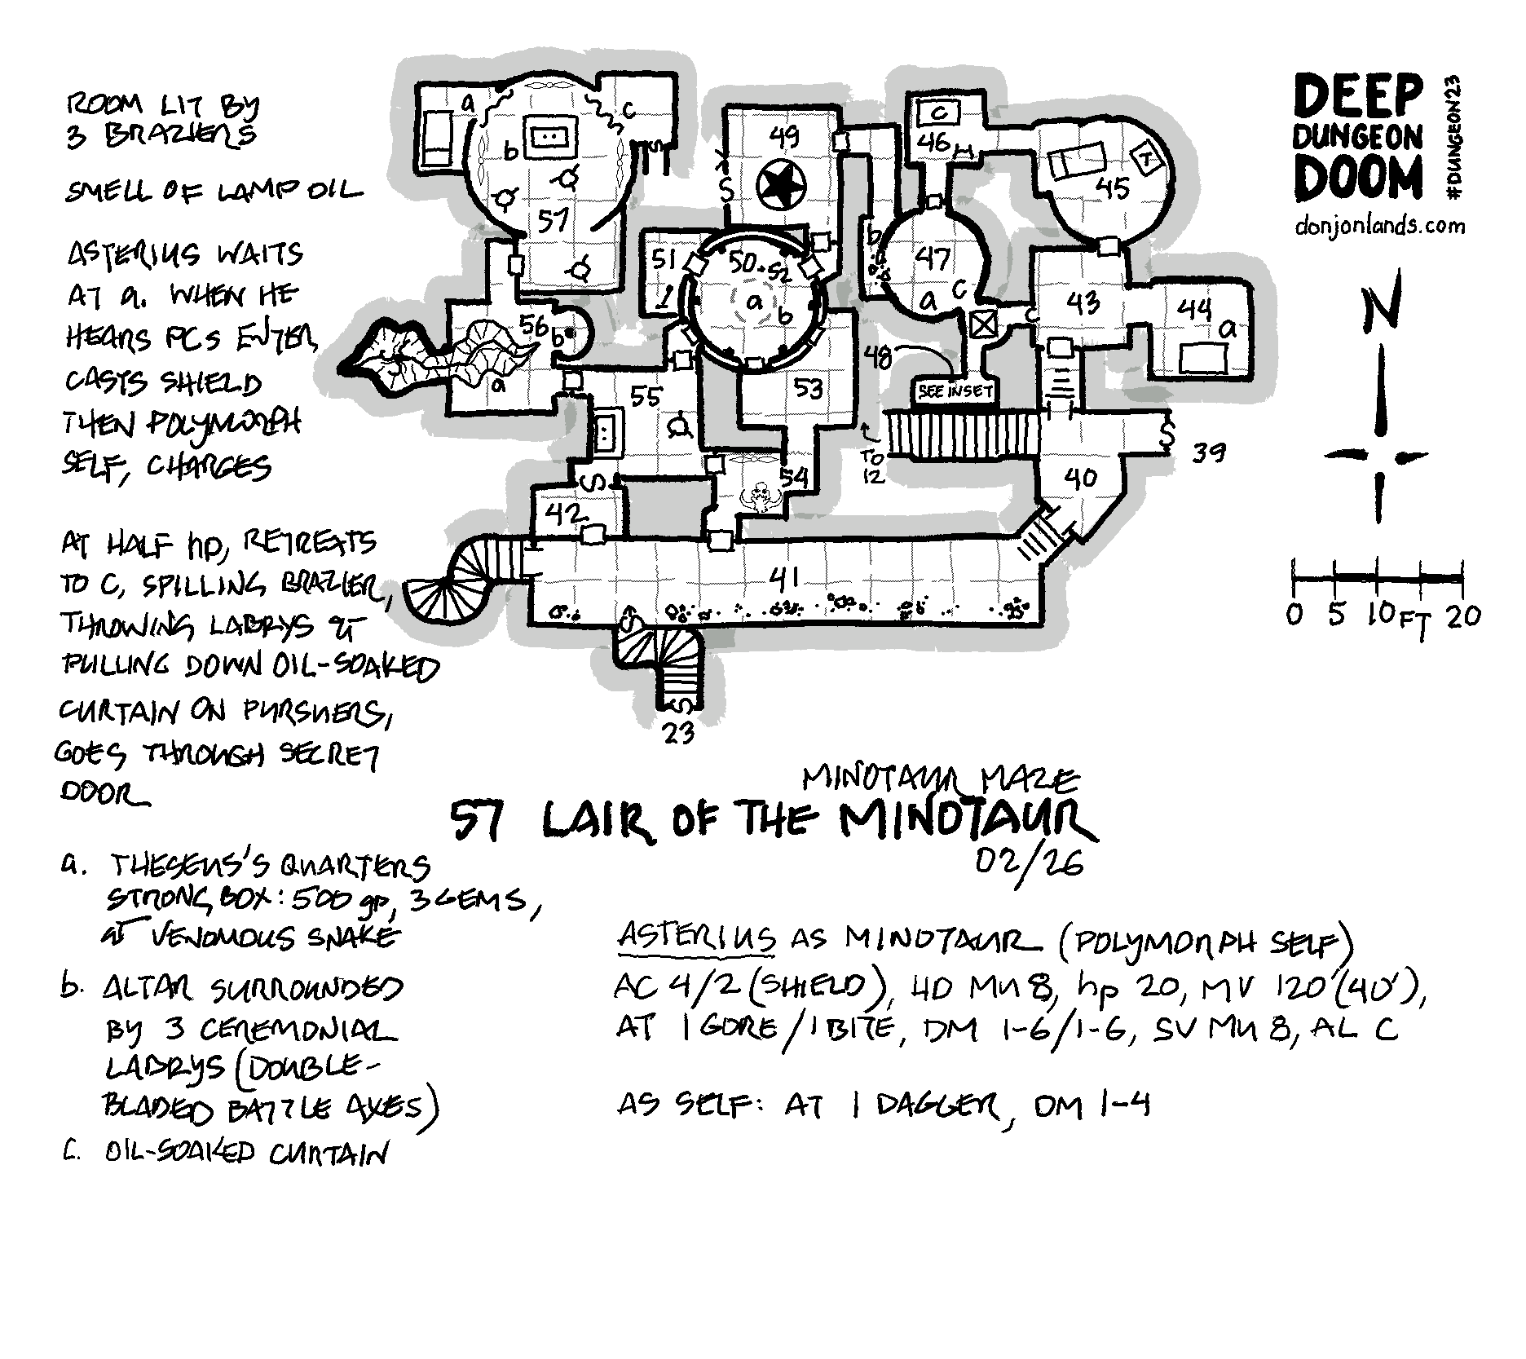 ROOM LIT BY
3 BRAZIERS
SMELL OF LAMP OIL
ASTERIUS WAITS
AT a. WHEN HE
HEARS PCS ENTER,
CASTS SHIELD
THEN POLYMORPH
SELF, CHARGES
AT HALF hp, RETREATS
TO C, SPILLING BRAZIER,
THROWING LABRYS &
PULLING DOWN OIL-SOAKED
CURTAIN ON PURSUERS,
GOES THROUGH SECRET
DOOR
a. THESEUS'S QUARTERS
STRONG BOX: 500 gp, 3 GEMS,
& VENOMOUS SNAKE
b. ALTAR SURROUNDED
BY 3 CEREMONIAL
LABRYS (DOUBLE-
BLADED BATTLE AXES)
C. OIL-SOAKED CURTAIN
a
b
c
S
57
49
S
46
C
45
51
50
52
a
b
b
47
a
C
43
C
44
a
56
b
a
48
SEE INSET
53
55
TO
12
S
39
54
40
S
42
41
S
S
23
MINOTAUR MAZE
57 LAIR OF THE MINOTAUR
02/26
ASTERIUS AS MINOTAUR (POLYMORPH SELF)
AC 4/2 (SHIELD), HD MU 8, hp 20, MV 120'(40'),
AT 1 GORE/1 BITE, DM 1-6/1-6, SV MU 8, AL C
AS SELF: AT 1 DAGGER, DM 1-4
DEEP
DUNGEON
DOOM
#DUNGEON23
donjonlands.com
N
0 5 10 FT 20